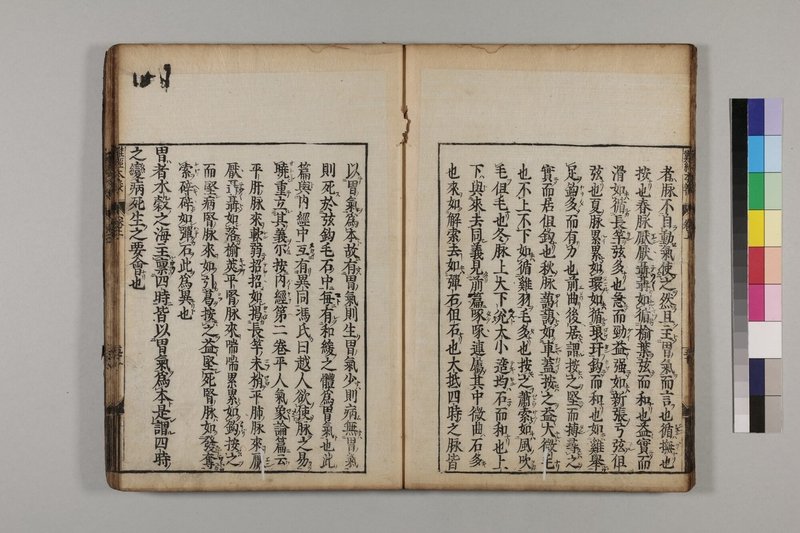 者脉不自動氣使之然且主胃氣而言也循撫也
按也春脉厭厭聶聶如循榆葉弦而和也益實而
滑如循長竿弦多也急而勁益强如新張弓弦但
弦也夏脉累累如環如循琅玕鈎而和也如雞舉
足鈎多而有力也前曲後居謂按之堅而搏尋之
實而居但鈎也秋脉藹藹如車蓋按之益大微毛
也不上不下如循雞羽毛多也按之蕭索如風吹
毛但毛也冬脉上大下兊大小均石而和也上
下與來去同義見前篇啄啄連屬其中微曲石多
也來如解索去如彈石但石也大抵四時之脉皆
以胃氣爲本故有胃氣則生胃氣少則病無胃氣
則死於弦鈎毛石中每有和緩之體爲胃氣也此
篇與内經中互有異同馮氏曰越人欲使脉之易
曉重立其義尓按内經第二卷平人氣象論篇云
平肝脉來耎弱招招如揭長竿末梢平肺脉來厭
厭聶聶如落榆莢平腎脉來喘喘累累如鈎按之
而堅病腎脉來如引葛按之益堅死腎脉來如發奪
索辟辟如彈石此爲異也
胃者水穀之海主禀四時皆以胃氣爲本是謂四時
之變病死生之要會也